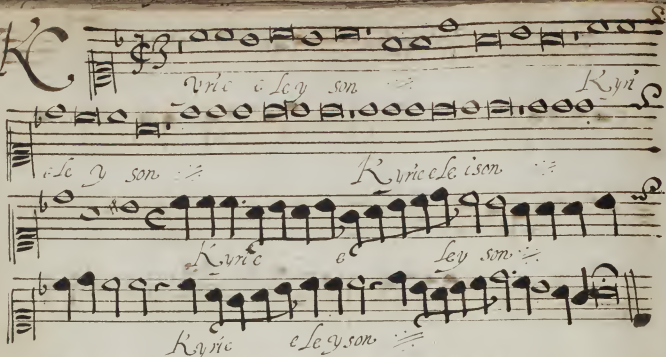 Kyrie eleyson Kyri
eleyson Kyrie eleison
Kyrie eleyson
Kyrie eleyson